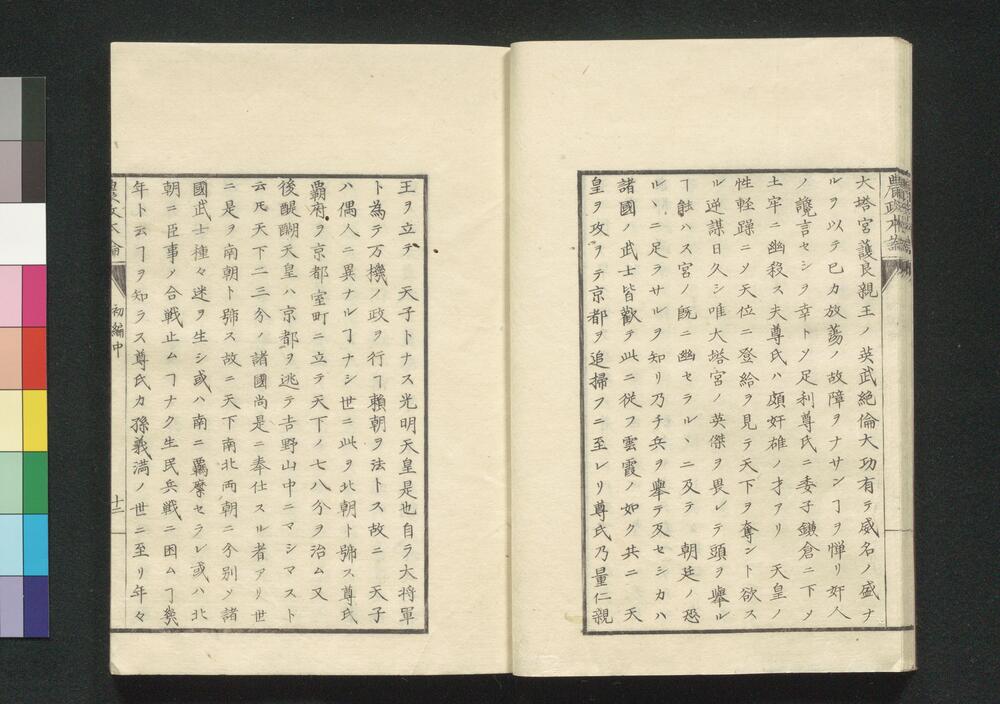 農政本論
大塔宮護良親王ノ英武絶倫大功有テ威名ノ盛ナ
ルヲ以テ已カ放蕩ノ故障ヲナサンヿヲ憚リ奸人
ノ讒言セシヲ幸トソ足利尊氏ニ委子鎌倉ニ下メ
土牢ニ幽殺ス夫尊氏ハ頗奸雄ノ才アリ 天皇ノ
性軽躁ニソ天位ニ登給ヲ見テ天下ヲ奪ント欲ス
ル逆謀日久シ唯大塔宮ノ英傑ヲ畏レテ頭ヲ舉ル
ヿ能ハス宮ノ既ニ幽セラルヽニ及テ 朝廷ノ恐
ルヽニ足ラサルヲ知リ乃チ兵ヲ舉テ反セシカハ
諸國ノ武士皆歡テ此ニ従フ雲霞ノ如ク共ニ 天
皇ヲ攻ヲテ京都ヲ追掃フニ至レリ尊氏乃量仁親
王ヲ立テ 天子トナス光明天皇是也自ラ大将軍
ト為テ万機ノ政ヲ行フヿ賴朝ヲ法トス故ニ 天子
ハ偶人ニ異ナルヿナシ世ニ此ヲ北朝ト號ス尊氏
覇府ヲ京都室町ニ立テ天下ノ七八分ヲ治ム又
後醍醐天皇ハ京都ヲ逃テ吉野山中ニマシマスト
云圧天下二三分ノ諸國尚是ニ奉仕スル者アリ世
ニ是ヲ南朝ト號ス故ニ天下南北両朝ニ分別ソ諸
國武士種々迷ヲ生シ或ハ南ニ羈縻セラレ或ハ北
朝ニ臣事ソ合戦止ムヿナク生民兵戦ニ困ムヿ幾
年ト云ヿヲ知ラス尊氏カ孫義満ノ世ニ至リ年々
初編中
十二